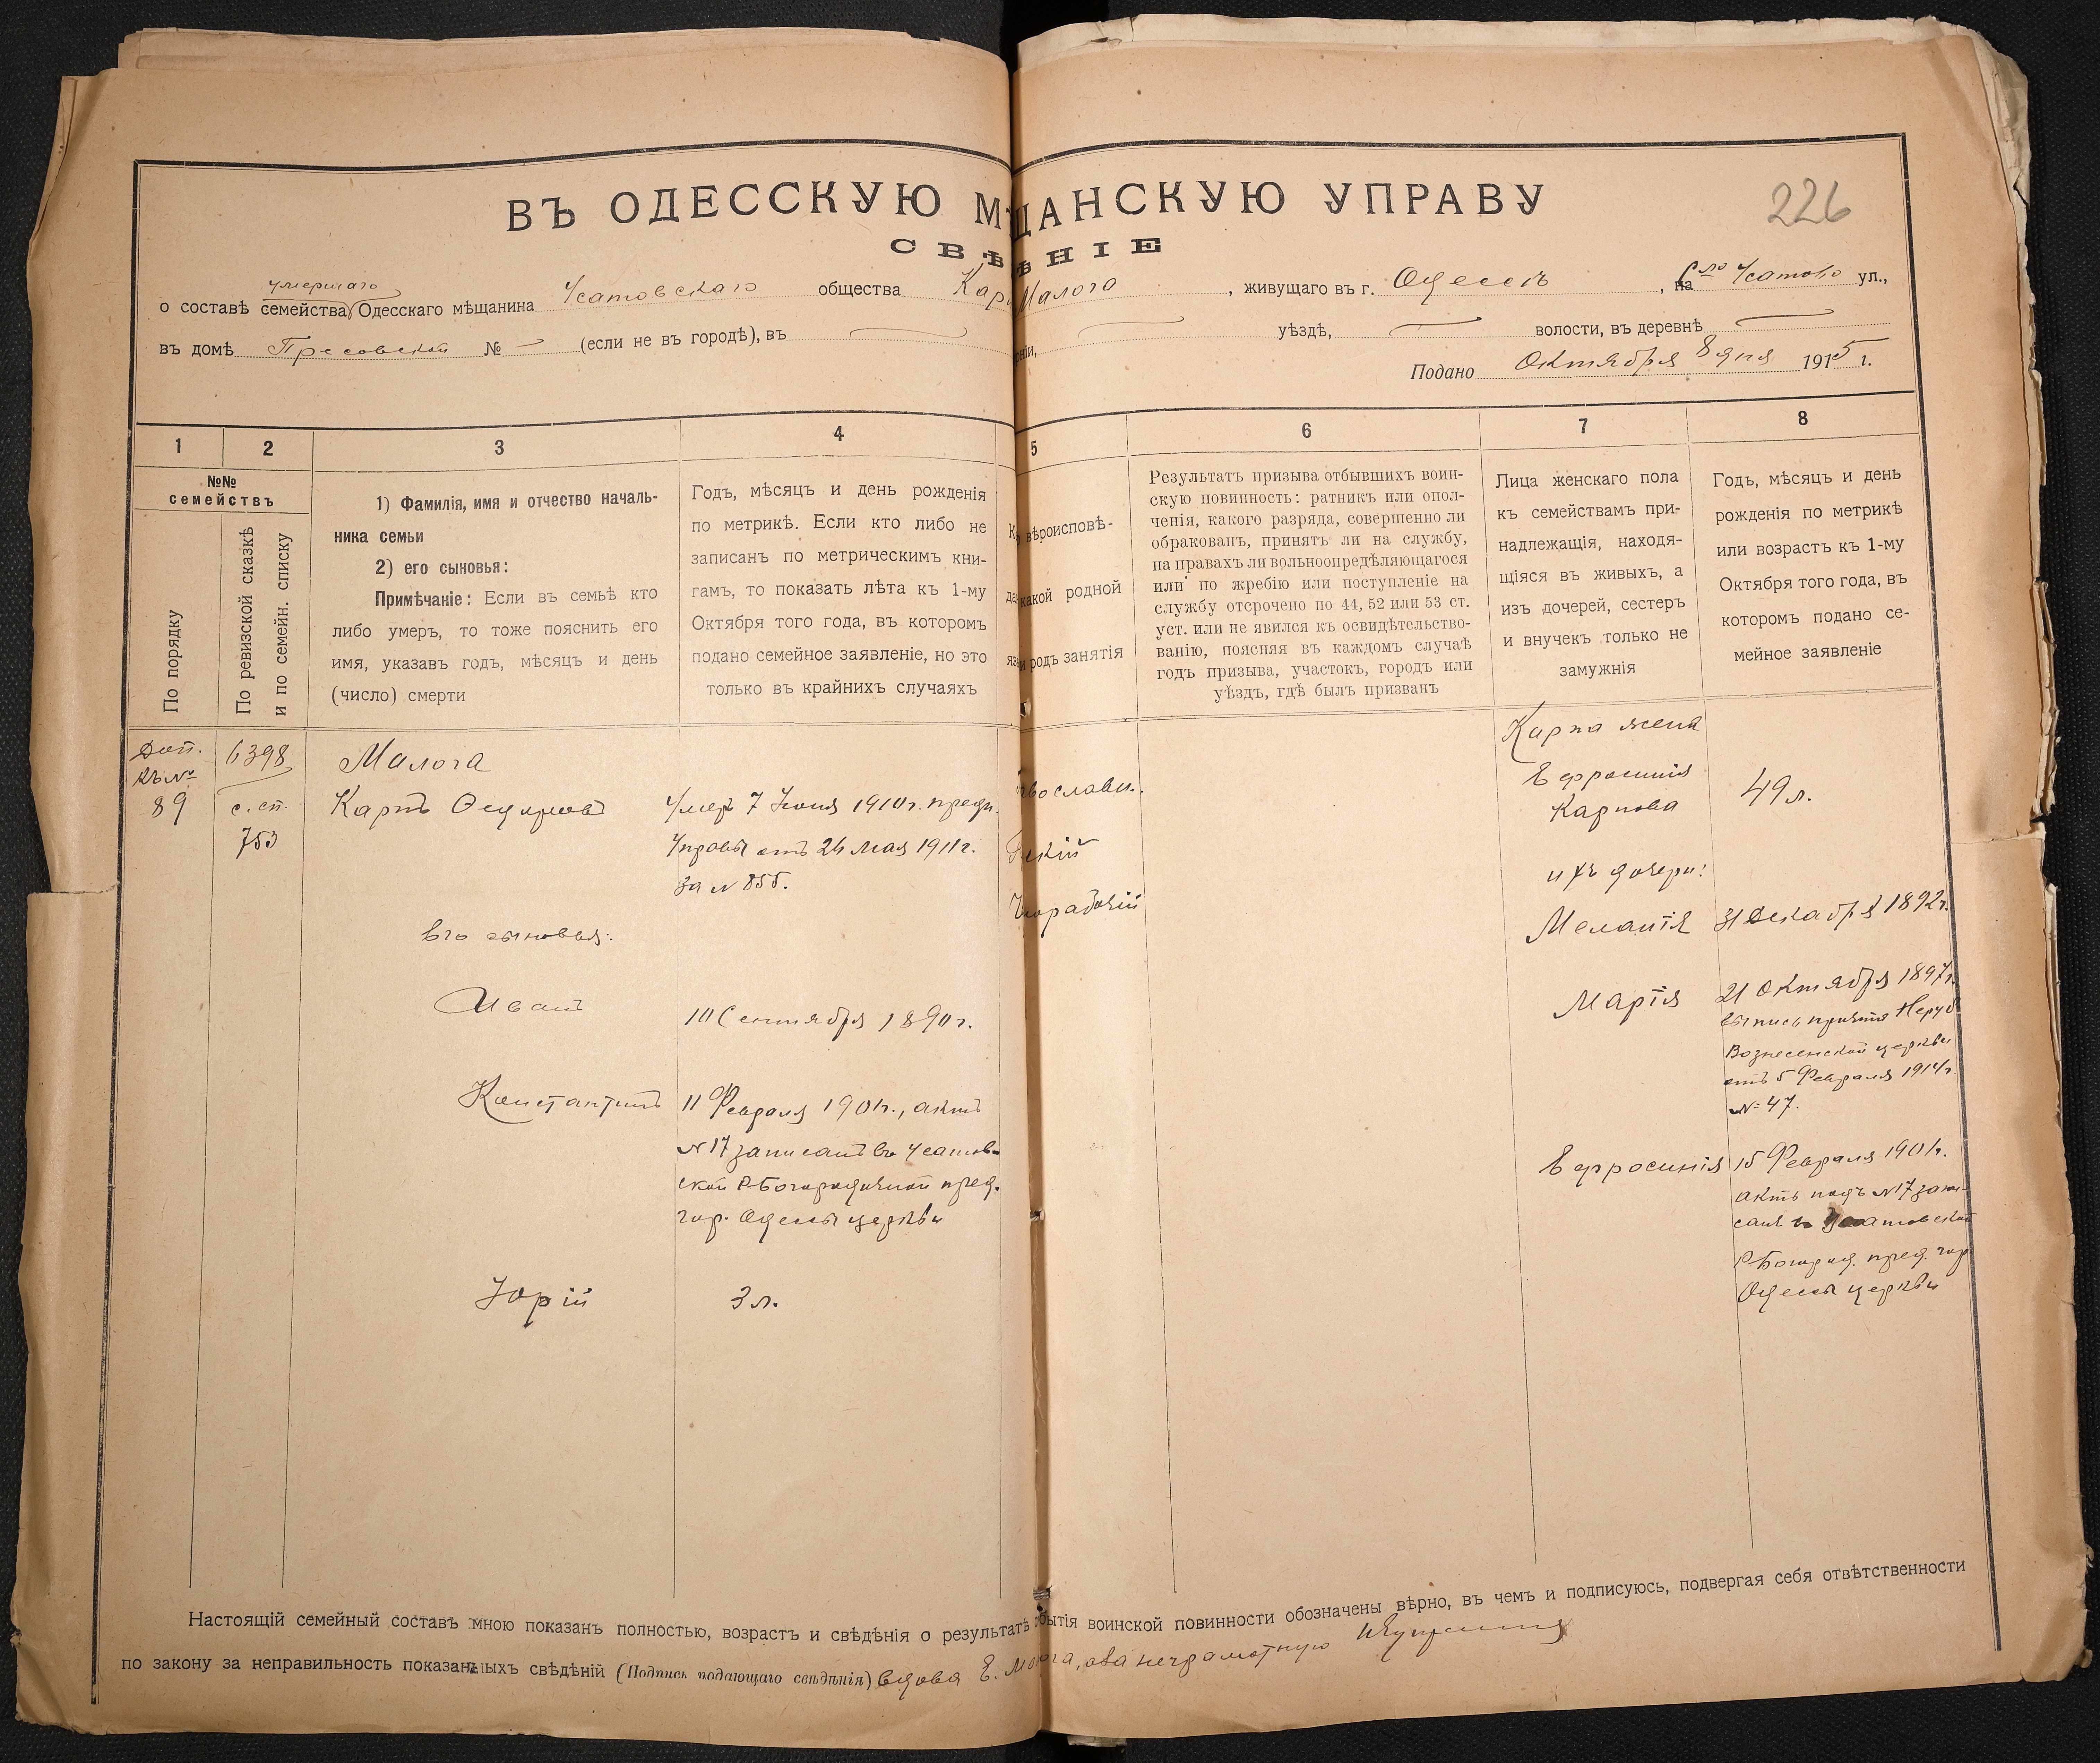 226
ВЪ ОДЕССКУЮ МѢЩАНСКУЮ УПРАВУ
СВѢ ѢНІЕ
умершаго
о составѣ семейства Одесскаго мѣщанина Усатовскаго общества Кар Малога, живущаго въ г. Одессѣ, на Усатово ул.,
въ домѣ № — (если не въ городѣ), въ — ніи, — уѣздѣ, — волости, въ деревнѣ —
Подано Октября 8 дня 1915 г.
1 2 3 4 5 6 7 8
№№
семействъ
По порядку
По ревизской сказкѣ
и по семейн. списку
1) Фамилія, имя и отчество началь-
ника семьи
2) его сыновья:
Примѣчаніе: Если въ семьѣ кто
либо умеръ, то тоже пояснить его
имя, указавъ годъ, мѣсяцъ и день
(число) смерти
Годъ, мѣсяцъ и день рожденія
по метрикѣ. Если кто либо не
записанъ по метрическимъ кни-
гамъ, то показать лѣта къ 1-му
Октября того года, въ которомъ
подано семейное заявленіе, но это
только въ крайнихъ случаяхъ
вѣроисповѣ-
какой родной
и родъ занятія
Результатъ призыва отбывшихъ воин-
скую повинность: ратникъ или опол-
ченія, какого разряда, совершенно ли
обракованъ, принятъ ли на службу,
на правахъ ли вольноопредѣляющагося
или по жребію или поступленіе на
службу отсрочено по 44, 52 или 53 ст.
уст. или не явился къ освидѣтельство-
ванію, поясняя въ каждомъ случаѣ
годъ призыва, участокъ, городъ или
уѣздъ, гдѣ былъ призванъ
Лица женскаго пола
къ семействамъ при-
надлежащія, находя-
щіяся въ живыхъ, а
изъ дочерей, сестеръ
и внучекъ только не
замужнія
Годъ, мѣсяцъ и день
рожденія по метрикѣ
или возрастъ къ 1-му
Октября того года, въ
которомъ подано се-
мейное заявленіе
Доп.
къ №
89
6398
с. сп.
753
Малога
Карпъ
Умеръ 7 Іюня 1910 г. предп.
Управы отъ 24 Мая 1911 г.
за № 855.
Его сыновья:
Иванъ
10 Сентября 1890 г.
Константинъ
11 Февраля 1901 г., актъ
№ 17 записанъ въ Усатов-
ской Р-Богородичной пред.
гор. Одессы церкви
Юрій
3 л.
вославн.
скій
норабочій
Карпа жена
Ефросинія
Карпова
49 л.
ихъ дочери:
Меланія
31 Декабря 1892 г.
Марія
21 Октября 1897 г.
выпись причта Неруб
Вознесенской церкви
отъ 5 Февраля 1914 г.
№ 47.
Ефросинія
15 Февраля 1901 г.
актъ подъ № 17 запи-
санъ въ Усатовской
Р-Богород. пред. гор.
Одессы церкви
Настоящій семейный составъ мною показанъ полностью, возрастъ и свѣдѣнія о результатѣ отбытія воинской повинности обозначены вѣрно, въ чемъ и подписуюсь, подвергая себя отвѣтственности
по закону за неправильность показанныхъ свѣдѣній (Подпись подающаго свѣдѣнія) вдова Е. Малога, а за неграмотную